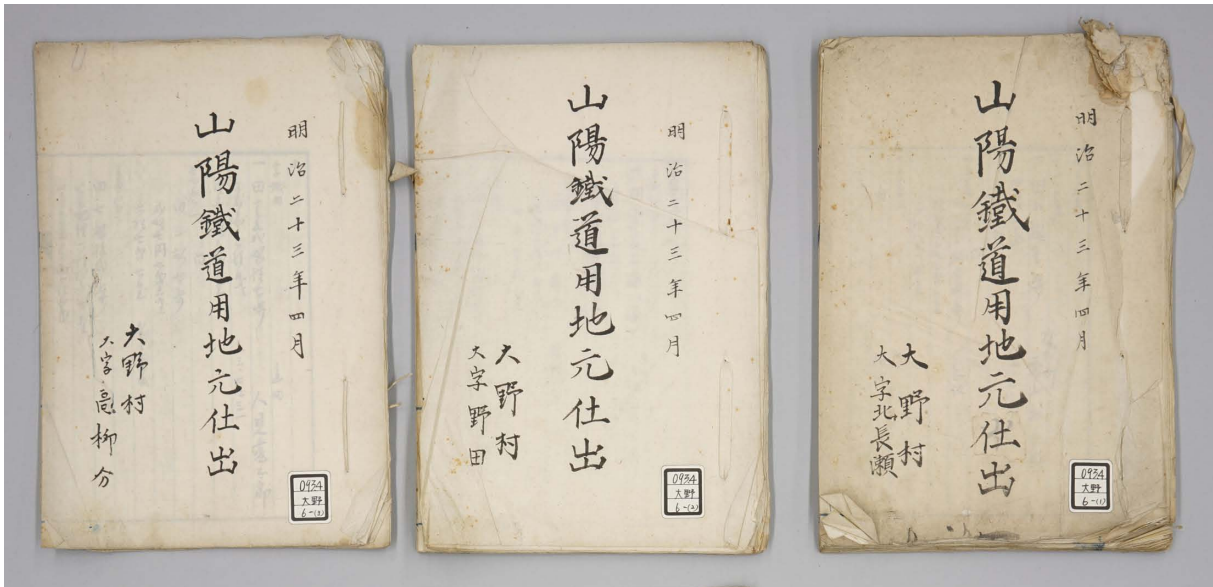 明治二十三年四月
山陽鐵道用地元仕出
大野村
大字北長瀨
0934
大野
6-(1)
明治二十三年四月
山陽鐵道用地元仕出
大野村
大字野田
0934
大野
6-(2)
明治二十三年四月
山陽鐵道用地元仕出
大野村
大字高柳分
0934
大野
6-(3)